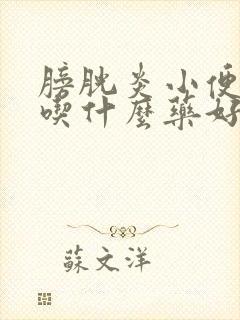 膀胱炎小便
喫什麼藥好
蘇文洋